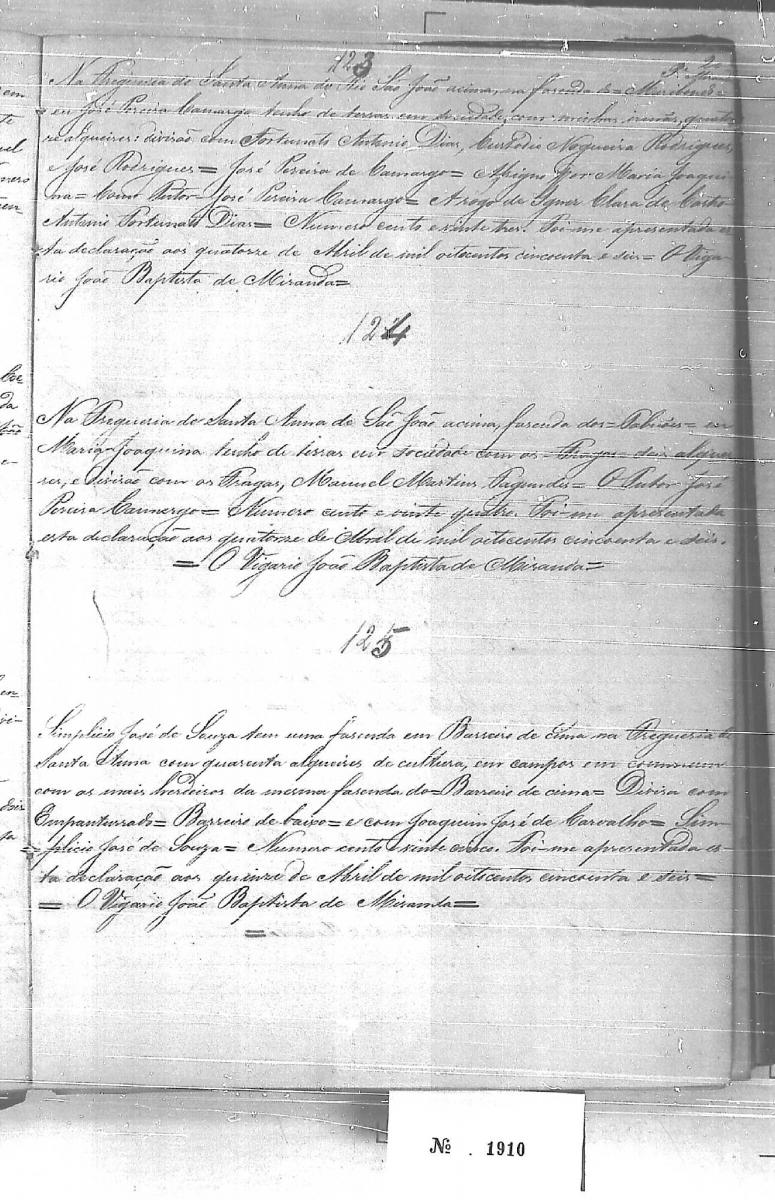 123
Na Freguesia de Santa Anna do Rio São João acima, na fasenda do =
eu José Pereira Camargo tenho de terras em sociedade com minhas irmãs, quator
ze alqueires: divisão com Fortunato Antonio Dias, Custodio Nogueira Rodrigues,
e José Rodrigues = José Pereira de Camargo = Asigno por Maria Joaqui
na = Como Tutor = José Pereira Camargo = A rogo de Ignez Clara de
Antonio Fortunato Dias = Numero cento e vinte tres. Foi-me apresentada es
ta declaração aos quatorze de Abril de mil oitocentos cincoenta e seis = O Viga-
rio João Baptista de Miranda =
124
Na Freguesia de Santa Anna de São João acima, fasenda dos = = eu
Maria Joaquina tenho de terras em sociedade com os Fragas = dois alquei
res, e divisão com os Fragas, Manuel Martins Fagundes = O Tutor José
Pereira Camargo = Numero cento e vinte quatro. Foi-me apresentada
esta declaração aos quatorze de Abril de mil oitocentos cincoenta e seis.
= O Vigario João Baptista de Miranda =
125
Simplicio José de Souza tem uma fasenda em Barreiro de cima na Freguesia de
Santa Anna com quarenta alqueires de cultura, em campos em commum
com as mais herdeiros da mesma fasenda do = Barreiro de cima = Divisa com
Empanturrado = Barreiro de baixo = e com Joaquim José de Carvalho = Sim-
plicio José de Souza = Numero cento e vinte cinco. Foi-me apresentada es-
ta declaração aos quinze de Abril de mil oitocentos cincoenta e seis =
= O Vigario João Baptista de Miranda =
=
Nº . 1910